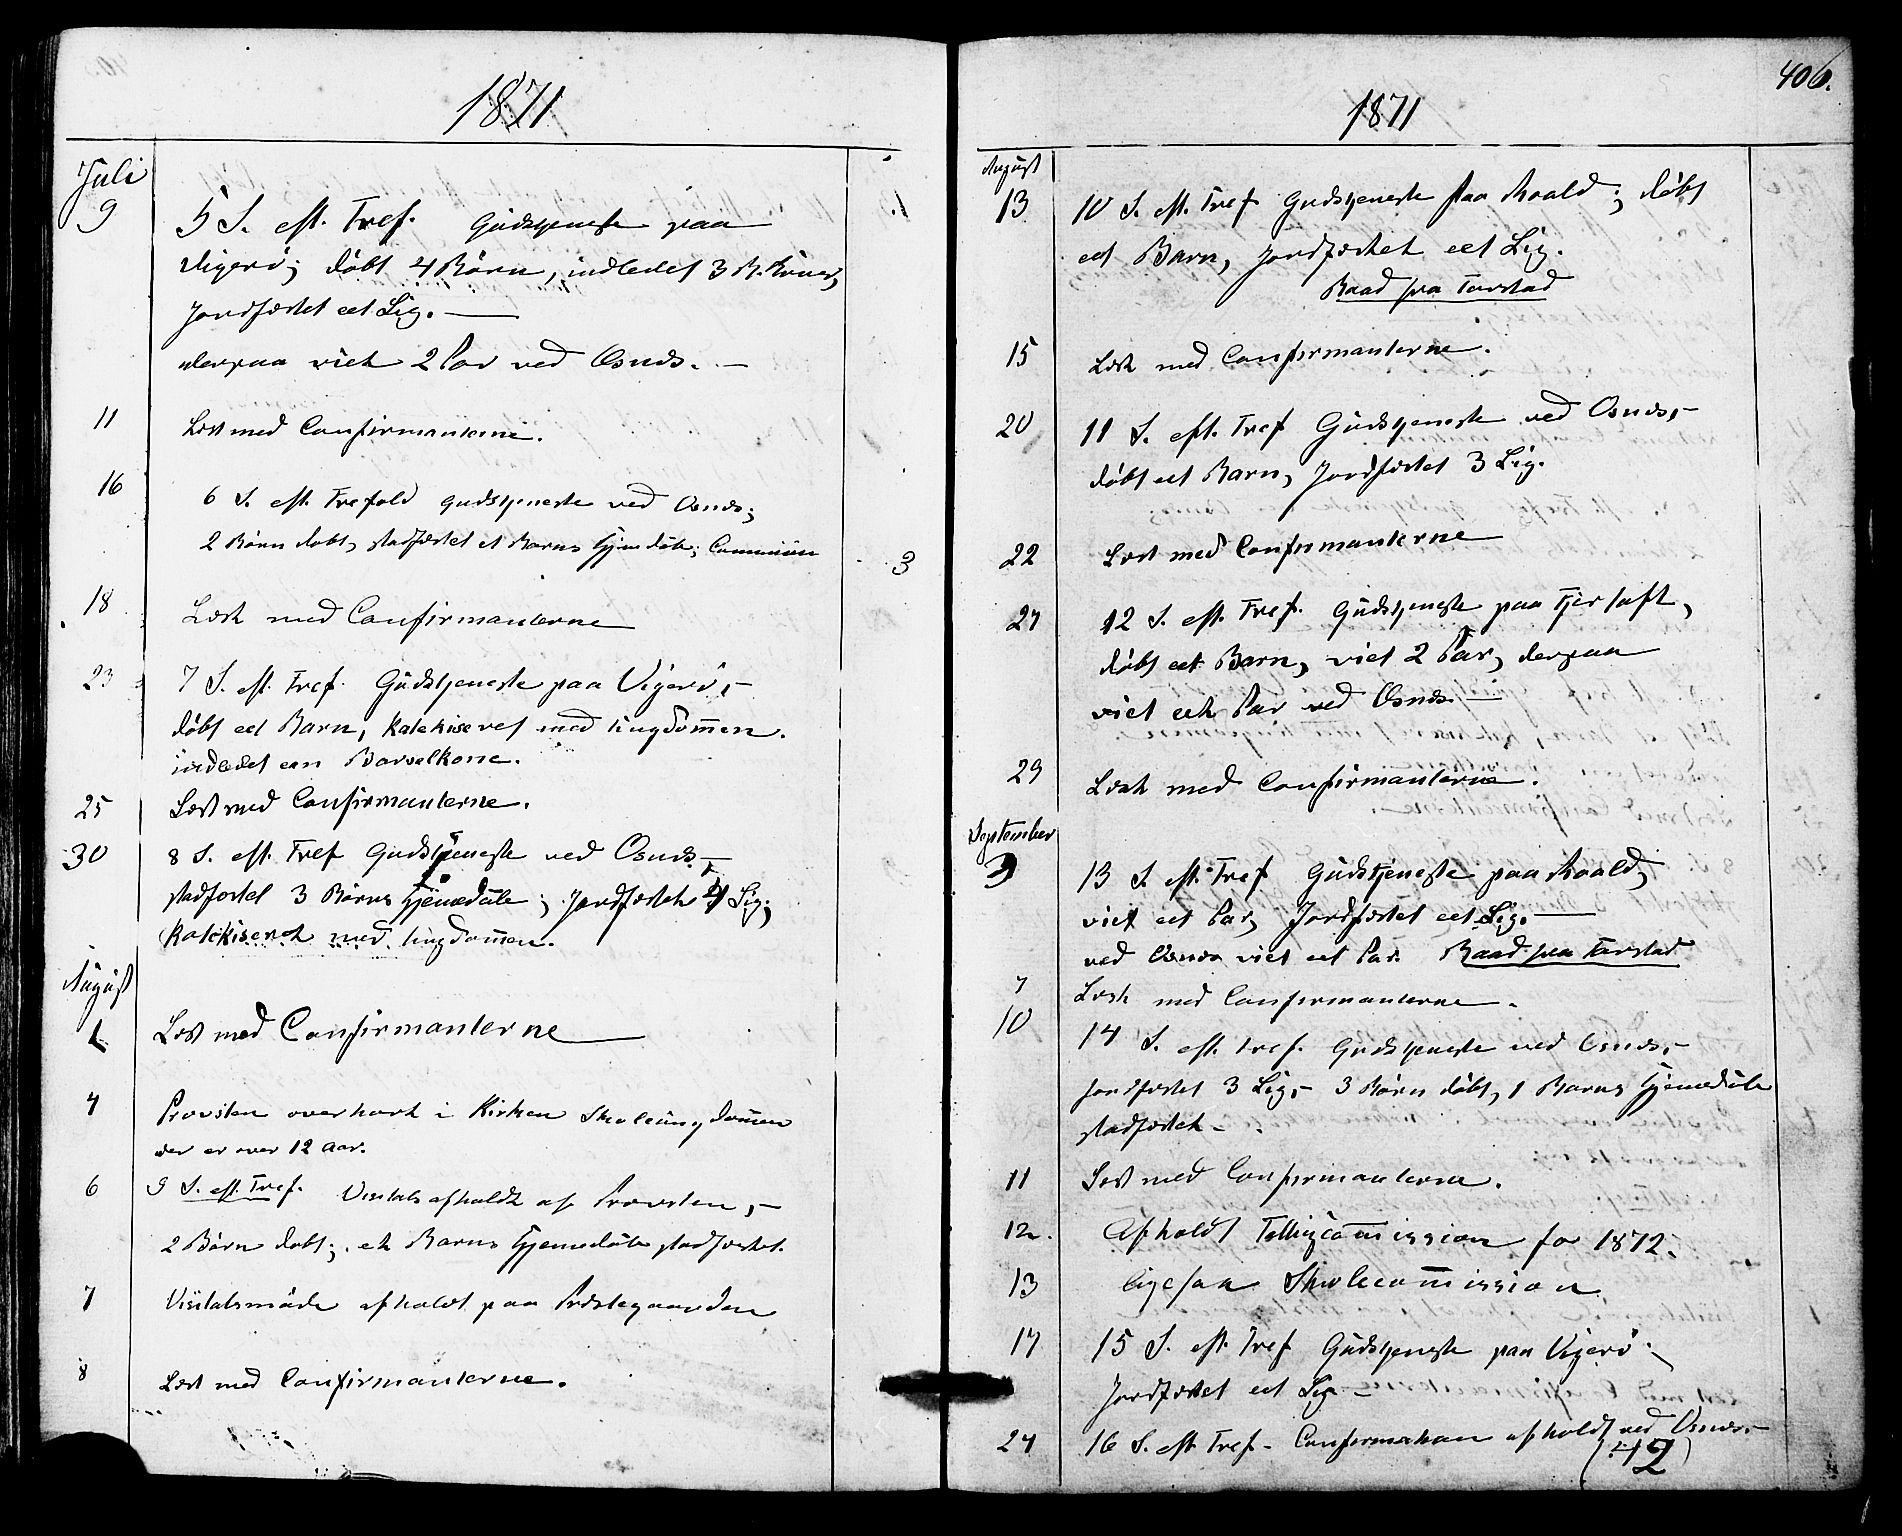 1871
Juli
9 5 S. eft. Tref. Gudstjeneste paa
Vigerö; döbt 4 Börn, indledet 3 B. Koner,
Jordfæstet eet Lig. —
derpaa viet 2 Par ved Osnæs. —
11 Læst med Confirmanterne.
16 6 S. eft. Trefold Gudstjeneste ved Osnæs;
2 Börn döbt, stadfæstet et Barns Hjemdöb; Communion 3
18 Læst med Confirmanterne
23 7 S. eft. Tref. Gudstjeneste paa Vigerö, —
döbt eet Barn, katekiseret med Ungdommen.
indledet een Barselkone.
25 Læst med Confirmanterne.
30 8 S. eft. Tref Gudstjeneste ved Osnæs. —
stadfæstet 3 Börns Hjemmedöb; Jordfæstet 4 Lig;
Katekiseret med Ungdommen.
August
1 Læst med Confirmanterne —
4 Provsten overhört i Kirken Skoleungdommen
der er over 12 Aar.
6 9 S. eft. Tref. Visitats afholdt af Provsten, —
2 Börn döbt; et Barns Hjemmedöb stadfæstet.
7 Visitatsmöde afholdt paa Præstegaarden
8 Læst med Confirmanterne.
406.
1871
August
13 10 S. eft. Tref Gudstjeneste paa Roald; döbt
eet Barn, Jordfæstet eet Lig.
Baad fra Tarstad
15 Læst med Confirmanterne.
20 11 S. eft. Tref Gudstjeneste ved Osnæs, —
döbt eet Barn, Jordfæstet 3 Lig.
22 Læst med Confirmanterne
27 12 S. eft. Tref. Gudstjeneste paa Fjertoft,
döbt eet Barn, viet 2 Par, derpaa
viet eet Par ved Osnæs. —
29 Læst med Confirmanterne.
September
3 13 S. eft. Tref Gudstjeneste paa Roald,
viet eet Par, Jordfæstet eet Lig. —
ved Osnæs viet eet Par. Baad fra Tarstad
7 Læst med Confirmanterne.
10 14 S. eft. Tref. Gudstjeneste ved Osnæs, —
Jordfæstet 3 Lig, — 3 Börn döbt, 1 Barns Hjemmedöb
stadfæstet —.
11 Læst med Confirmanterne.
12. Afholdt Fattigcommission for 1872.
13 ligesaa Skolecommission
17 15 S. eft. Tref Gudstjeneste paa Vigerö.
Jordfæstet eet Lig —
24 16 S. eft. Tref — Confirmation afholdt ved Osnæs. —
(42)